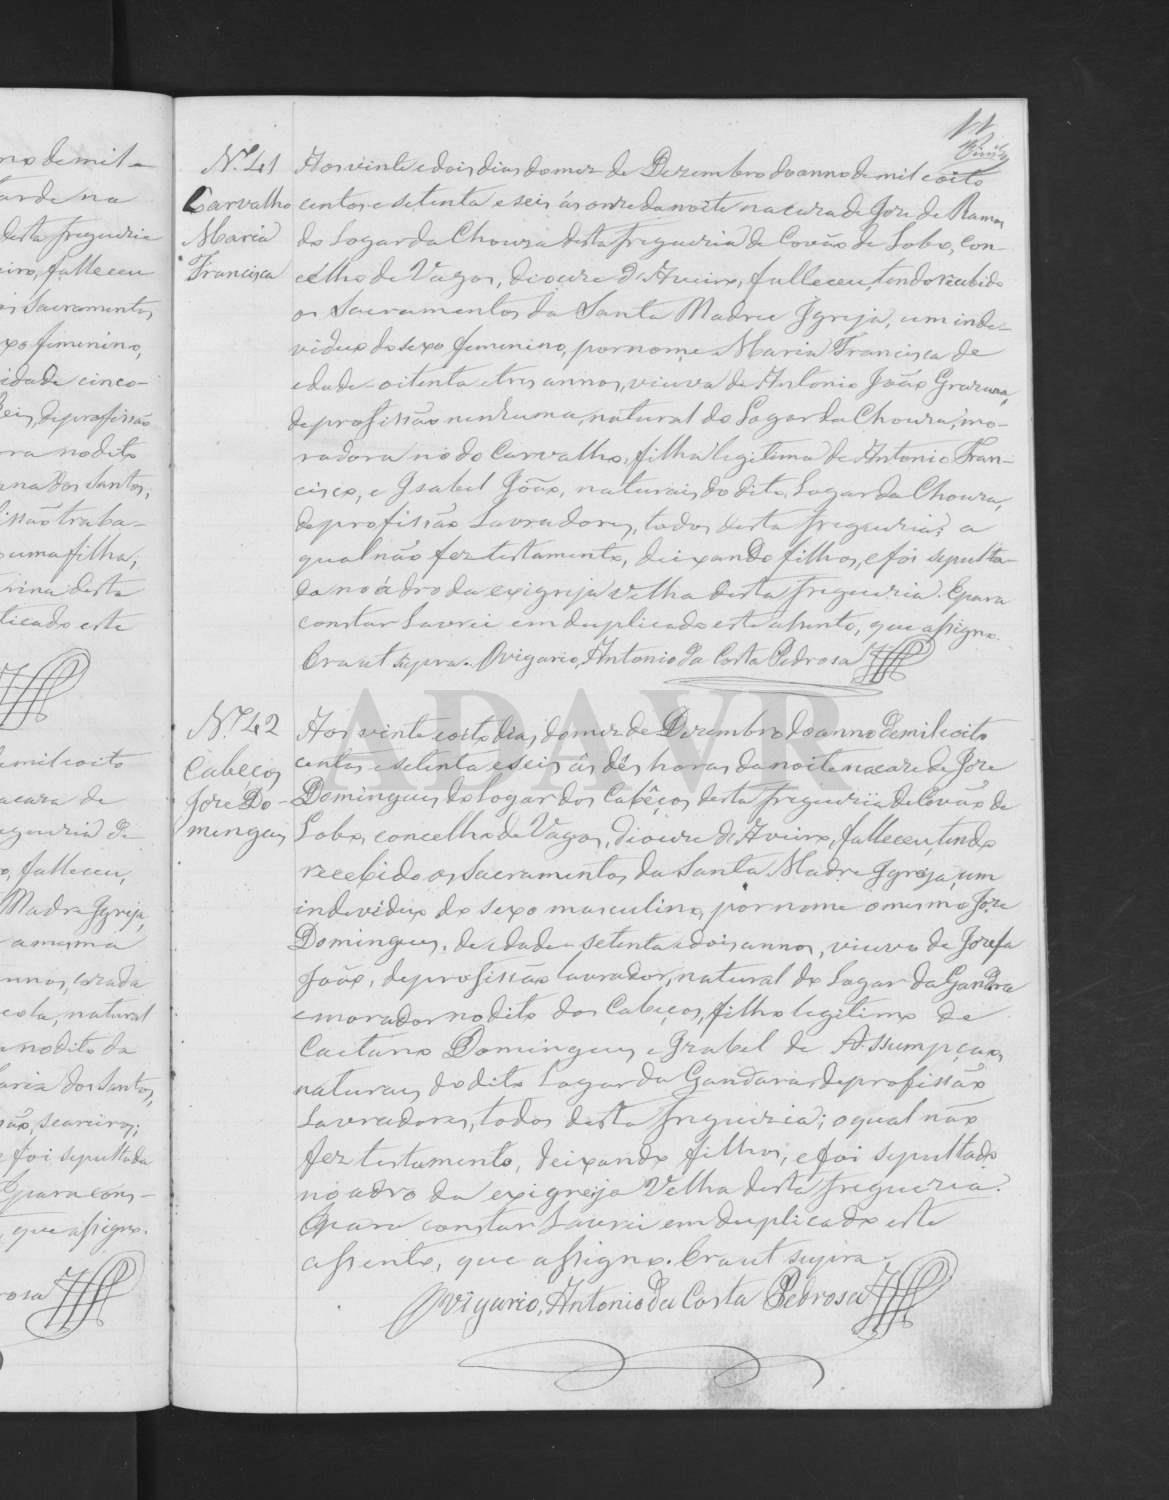 11
N.º 41
Carvalho
Maria
Francisca
Aos vinte e dois dias do mez de Dezembro do anno de mil e oito
centos e setenta e seis ás onze da noite na caza de Joze de Ramos
do Logar da Chouza desta freguezia de Covão do Lobo, con-
celho de Vagos, dioceze d'Aveiro, falleceu, tendo recebido
os Sacramentos da Santa Madre Igreja, um inde-
viduo do sexo femenino, por nome Maria Francisca de
edade oitenta e tres annos, viuva de Antonio João
de profissão nenhuma, natural do Logar da Chouza, mo-
radora no do Carvalho, filha legitima de Antonio Fran-
cisco, e Izabel João, naturais do dito Logar da Chouza,
de profissão Lavradores, todos desta freguezia; a
qual não fez testamento, deixando filhos, e foi sepulta-
da no ádro da exigreja velha desta freguezia. E para
constar Lavrei em duplicado este assento, que assigno.
Era ut supra. O vigario, Antonio da Costa Pedrosa
N.º 42
Cabeços
Joze Do-
mingues
Aos vinte e oito dias do mez de Dezembro do anno de mil e oito
centos e setenta e seis ás dés horas da noite na caza de Joze
Domingues do Logar dos Cabêços desta freguezia de Covão do
Lobo, concelho de Vagos, dioceze de Aveiro, falleceu, tendo
recebido os Sacramentos da Santa Madre Igreja, um
individuo do sexo masculino, por nome o mesmo Joze
Domingues, de edade setenta e dois annos, viuvo de Jozefa
João, de profissão lavrador, natural do Logar da Gandra
e morador no dito dos Cabeços, filho legitimo de
Caetano Domingues e Izabel de Assumpção,
naturaes do dito Logar da Gandara, de profissão
Lavradores, todos desta freguezia; o qual não
fez testamento, deixando filhos, e foi sepultado
no adro da exigreja Velha desta freguezia.
E para constar Lavrei em duplicado este
assento, que assigno. Era ut supra
O vigario, Antonio da Costa Pedrosa
ADAVR
no de mil e
tarde na
desta freguezia
eiro, falleceu
os Sacramentos
xo femenino,
idade cinco-
Reis, de profissão
ra no dito
ana dos Santos,
issão traba-
uma filha,
desta
licado este
e mil e oito
a caza de
eguezia de
o, falleceu,
Madre Igreja,
a mesma
nnos, cazada
natural
a no dito da
aria dos Santos,
são, seareiros;
e foi sepultada
E para cons-
, que assigno.
rosa